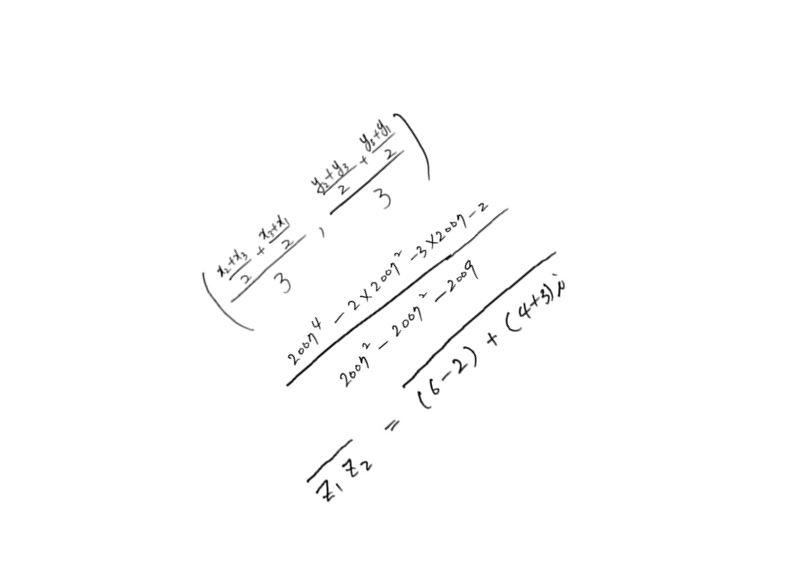 $\left( \frac{\frac{x_2+x_3}{2} + \frac{x_3+x_1}{2}}{3}, \frac{\frac{y_2+y_3}{2} + \frac{y_3+y_1}{2}}{3} \right)$
$\frac{2007^4 - 2 \times 2007^2 - 3 \times 2007 - 2}{2007^2 - 2007 - 2009}$
$\overline{z_1 z_2} = \overline{(6-2) + (4+3)i}$